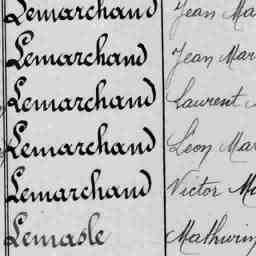 Lemarchand Jean Ma
Lemarchand Jean Mar
Lemarchand Laurent
Lemarchand Léon Mar
Lemarchand Victor Ma
Lemasle Mathurin